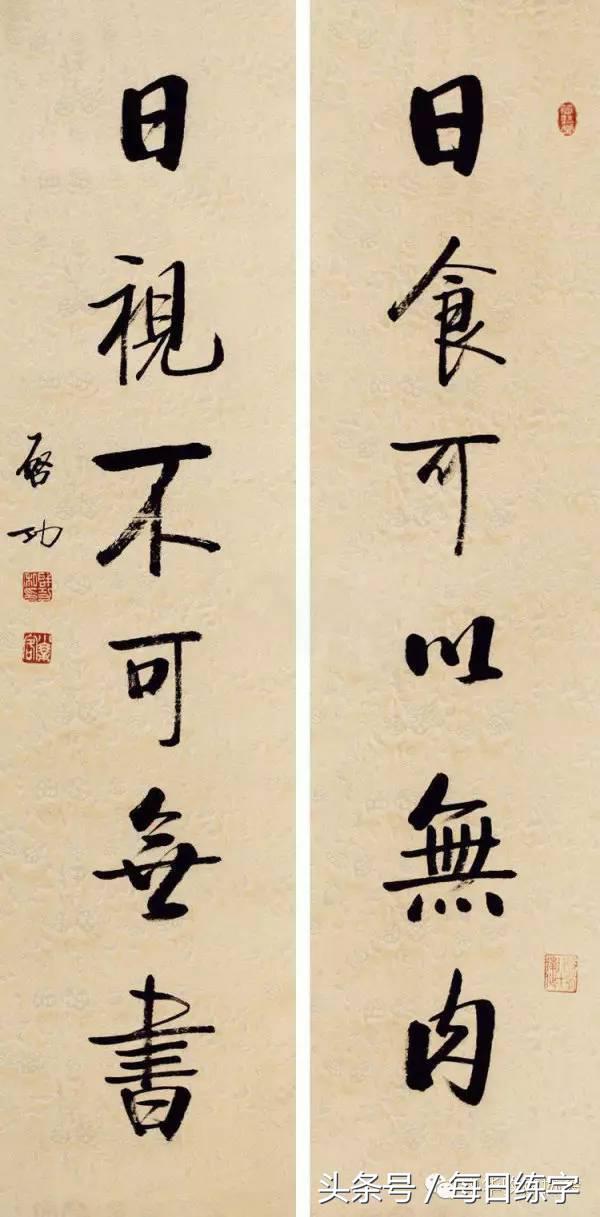 日食可以無肉
日視不可無書
啓功
头条号／每日练字